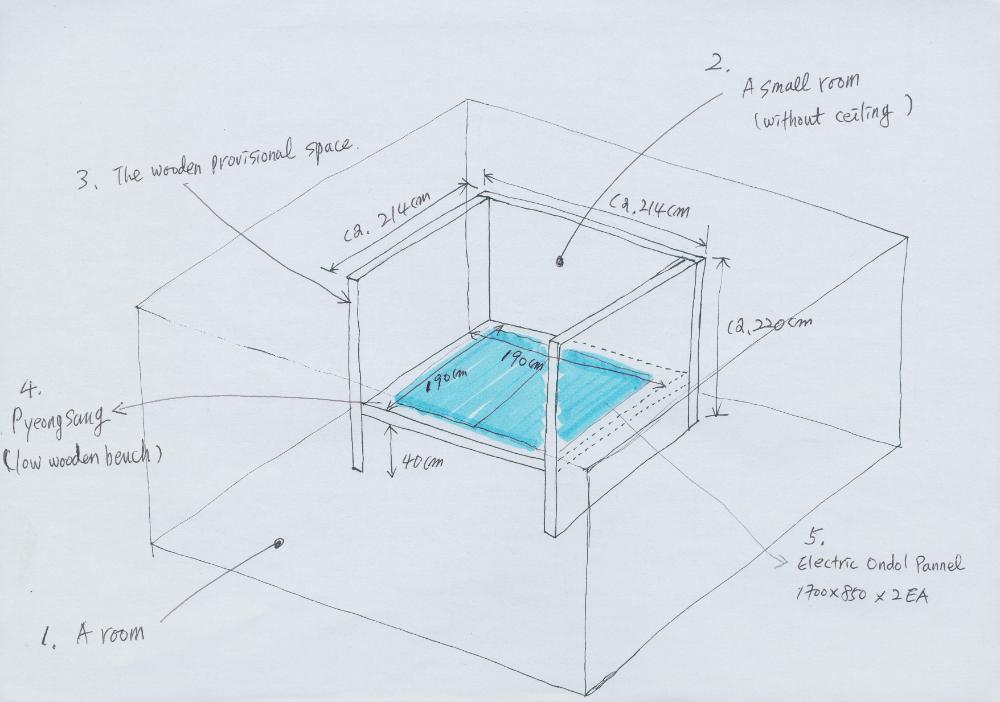 2.
A small room
(without ceiling)
3. The wooden provisional space.
ca. 214cm
ca. 214cm
ca. 220cm
190cm
190cm
4.
Pyeongsang
(low wooden bench)
40cm
5.
Electric Ondol Pannel
1700x850 x 2EA
1. A room